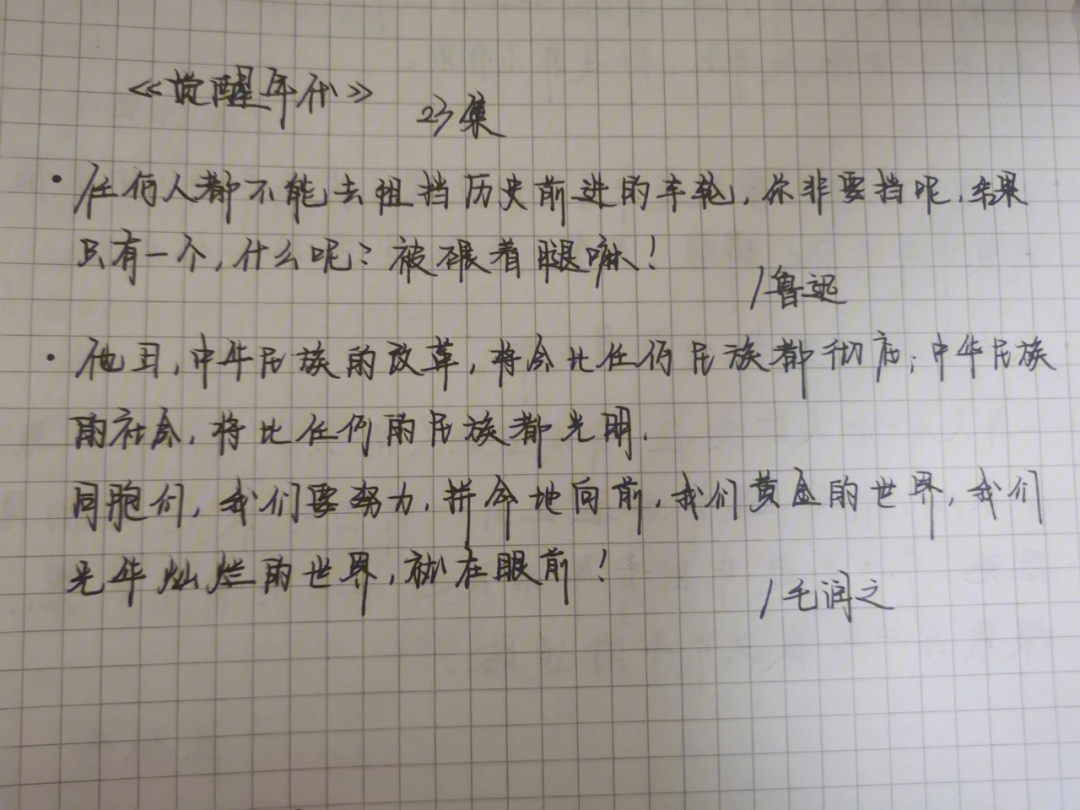 《觉醒年代》 23集
• 任何人都不能去阻挡历史前进的车轮,你非要挡呢,结果
只有一个,什么呢?被碾着腿嘛!
/鲁迅
• 他日,中华民族的改革,将会比任何民族都彻底;中华民族
的社会,将比任何的民族都光明.
同胞们,我们要努力,拼命地向前,我们黄金的世界,我们
光华灿烂的世界,就在眼前!
/毛润之